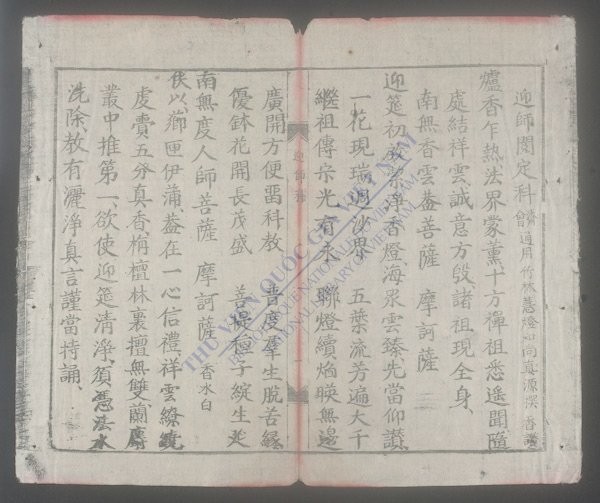 迎師闍定科 齋會 通用 竹林慧燈和尚真源撰 香讚
爐香乍熱法界蒙薰十方禪祖悉遥聞隨
處結祥雲誠意方殷諸祖現全身
南無香雲葢菩薩 摩訶薩 三
迎筵初啟潔淨香燈海衆雲臻先當仰讃
一花現瑞週沙界 五葉流芳遍大千
繼祖傳宗光有永 聯燈續焰暎無邊
迎師科
一
廣開方便畱科教 普度羣生脫苦緣
優鉢花開長茂盛 菩提種子綻生芺
南無度人師菩薩 摩訶薩 三 香水白
伏以薌匣伊蒲葢在一心信禮祥雲繚繞
處賣五分真香栴檀林裏擅無雙蘭麝
叢中推第一欲使迎筵清淨須憑法水
洗除教有灑淨真言謹當持誦
THƯ VIỆN QUỐC GIA VIỆT NAM
BIBLIOTHEQUE NATIONALE DU VIETNAM
NATIONAL LIBRARY OF VIETNAM